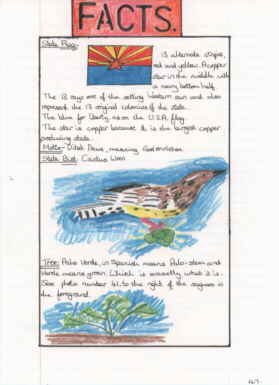 FACTS.
State Flag:
13 alternate stripes,
red and yellow. A copper
star in the middle with
a navy bottom half.
The 13 rays are of the setting Western sun and also
represent the 13 original colonies of the state.
The blue for liberty, as on the U.S.A. flag.
The star is copper because it is the largest copper
producing state.
Motto:- Ditat Deus, meaning God enriches.
State Bird: Cactus Wren
Tree: Palo Verde, in Spanish means Palo-stem and
Verde means green. Which is exactly what it is.
See photo number 41, to the right of the
the foreground.